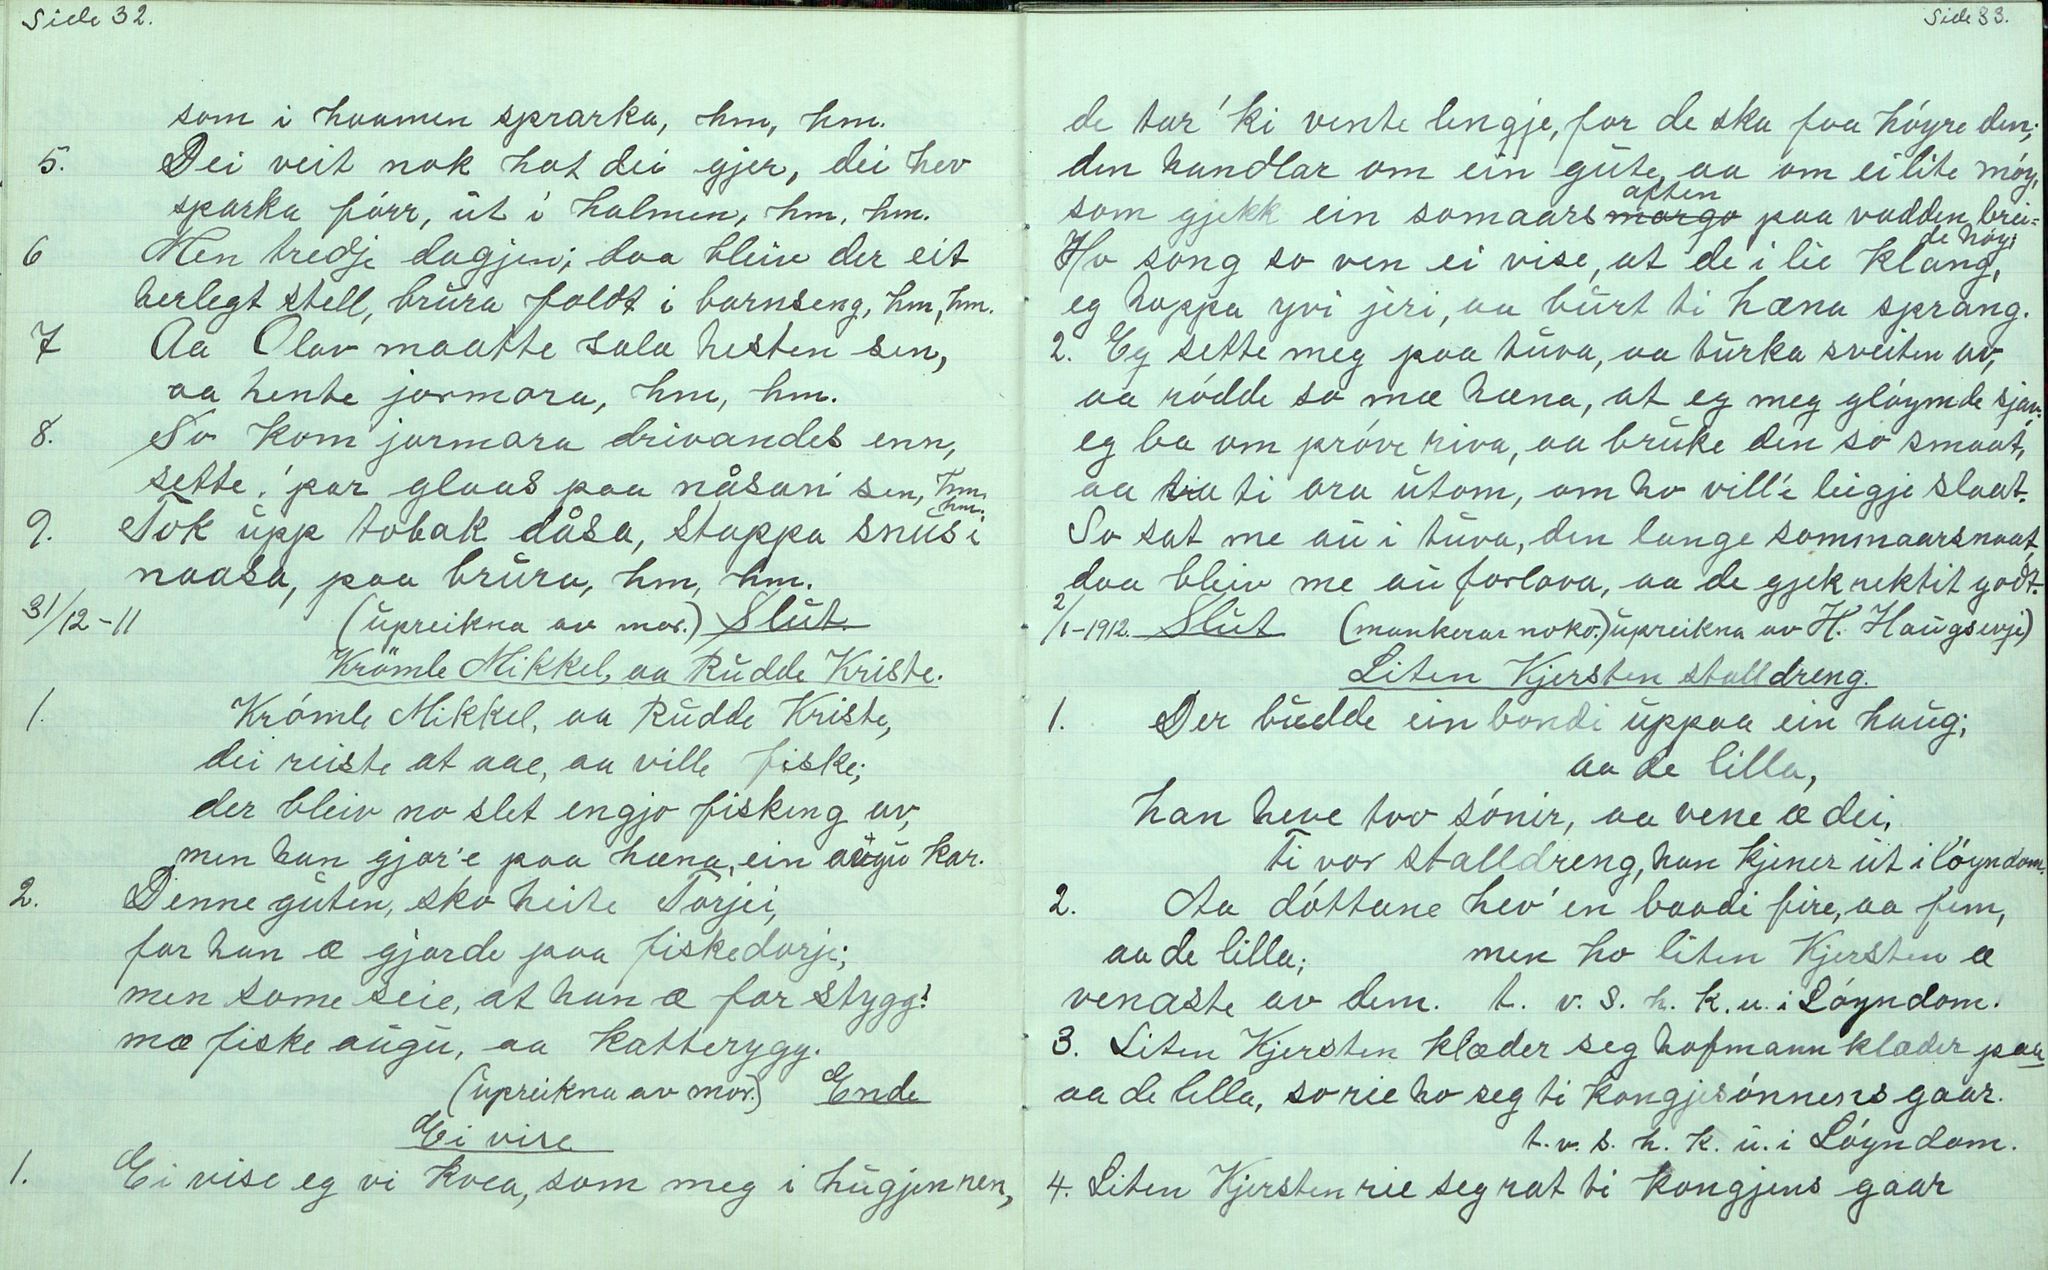 Side 32.
som i hoomen sprarka, hm, hm.
5. Dei veit nok hot dei gjer, dei hev
sparka fórr, ut i holmen, hm, hm.
6 Men tredje dagjen; daa bleiv der eit
herlegt stell, brura foldt i barnseng, hm, hm.
7 Aa Olav maatte sala hesten sen,
aa hente jormora, hm, hm.
8. So kom jormora drivandes enn,
sette 'par glaas paa nåsan sen, hm,
hm.
9. Tok upp tobak dåsa, stappa snus i
naasa, paa brura, hm, hm.
31/12-11 (upreikna av mor.) Slut.
Krómle Mikkel, aa Rudde Kriste.
1. Krómle Mikkel, aa Rudde Kriste,
dei reiste at aae, aa ville fiske;
der bleiv no slet engjo fisking av,
men han gjor'e paa hæna, ein augu kar.
2. Denne guten, sko heite Torjei,
for han æ gjorde paa fiskedorje;
men some seie, at han æ for stygg!
mæ fiske augu, aa katterygg.
(upreikna av mor.) Ende
Ei vise
1. Ei vise eg vi kvea, som meg i hugjen ren,
Side 33.
de tar 'ki vente lengje, for de ska faa hóyre den;
den handlar om ein gute, aa om ei lite móy,
som gjekk ein somaars morgo aften paa vadden brei=
de hóy;
Ho song so ven ei vise, at de i lie klang,
eg hoppa yvi jeri, aa burt ti hæna sprang.
2. Eg sette meg paa tuva, aa turka sveiten av,
aaródde so mæ hæna, at eg meg glóymde sjav;
eg ba om próve riva, aa bruke den so smaat,
aa ti ara utom, om ho vill'e leigje slaat.
So sat me au i tuva, den lange sommaarsnaat,
daa bleiv me au forlova, aa de gjek rektit godt.
2/1-1912. Slut (mankerar noko.) upreikna av H. Haugsevje)
Liten Kjersten stalldreng.
1. Der budde ein bondi uppaa ein haug;
aa de lilla,
han heve tvo sónir, aa vene æ dei,
Ti vor stalldreng, han tjener ut i lóyndom.
2. Aa dóttane hev' en baadi fire, aa fem,
aa de lilla; men ho liten Kjersten æ
venaste av dem. t. v. s. h. k. u. i Lóyndom.
3. Liten Kjersten klæder seg hofmann klæder paa
aa de lilla, so rie ho seg ti kongjesónnens gaar.
t. v. s. h. k. u. i Lóyndom.
4. Liten Kjersten rie seg rat ti kongjens gaar